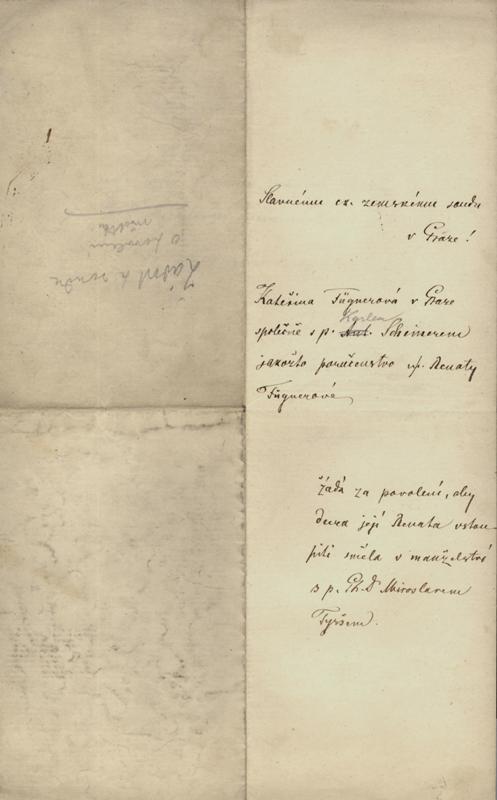 Slavnému ck. zemskému soudu
v Praze!
Kateřina Fügnerová v Praze
Karlem
společně s p. Ant. Scheinerem
jakožto poručenstvo slč. Renaty
Fügnerové
žádá za povolení, aby
dcera její Renata vstou-
piti směla v manželství
s p. Ph. Dr Miroslavem
Tyršem.
Žádost k soudu
o povolení